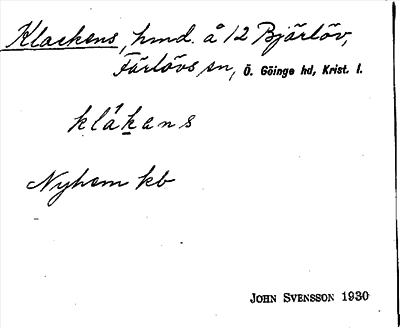 Klackens, hmd. å 12 Bjärlöv,
Färlövs sn, Ö. Göinge hd, Krist. l.
klákans
Nyhem kb
JOHN SVENSSON 1930